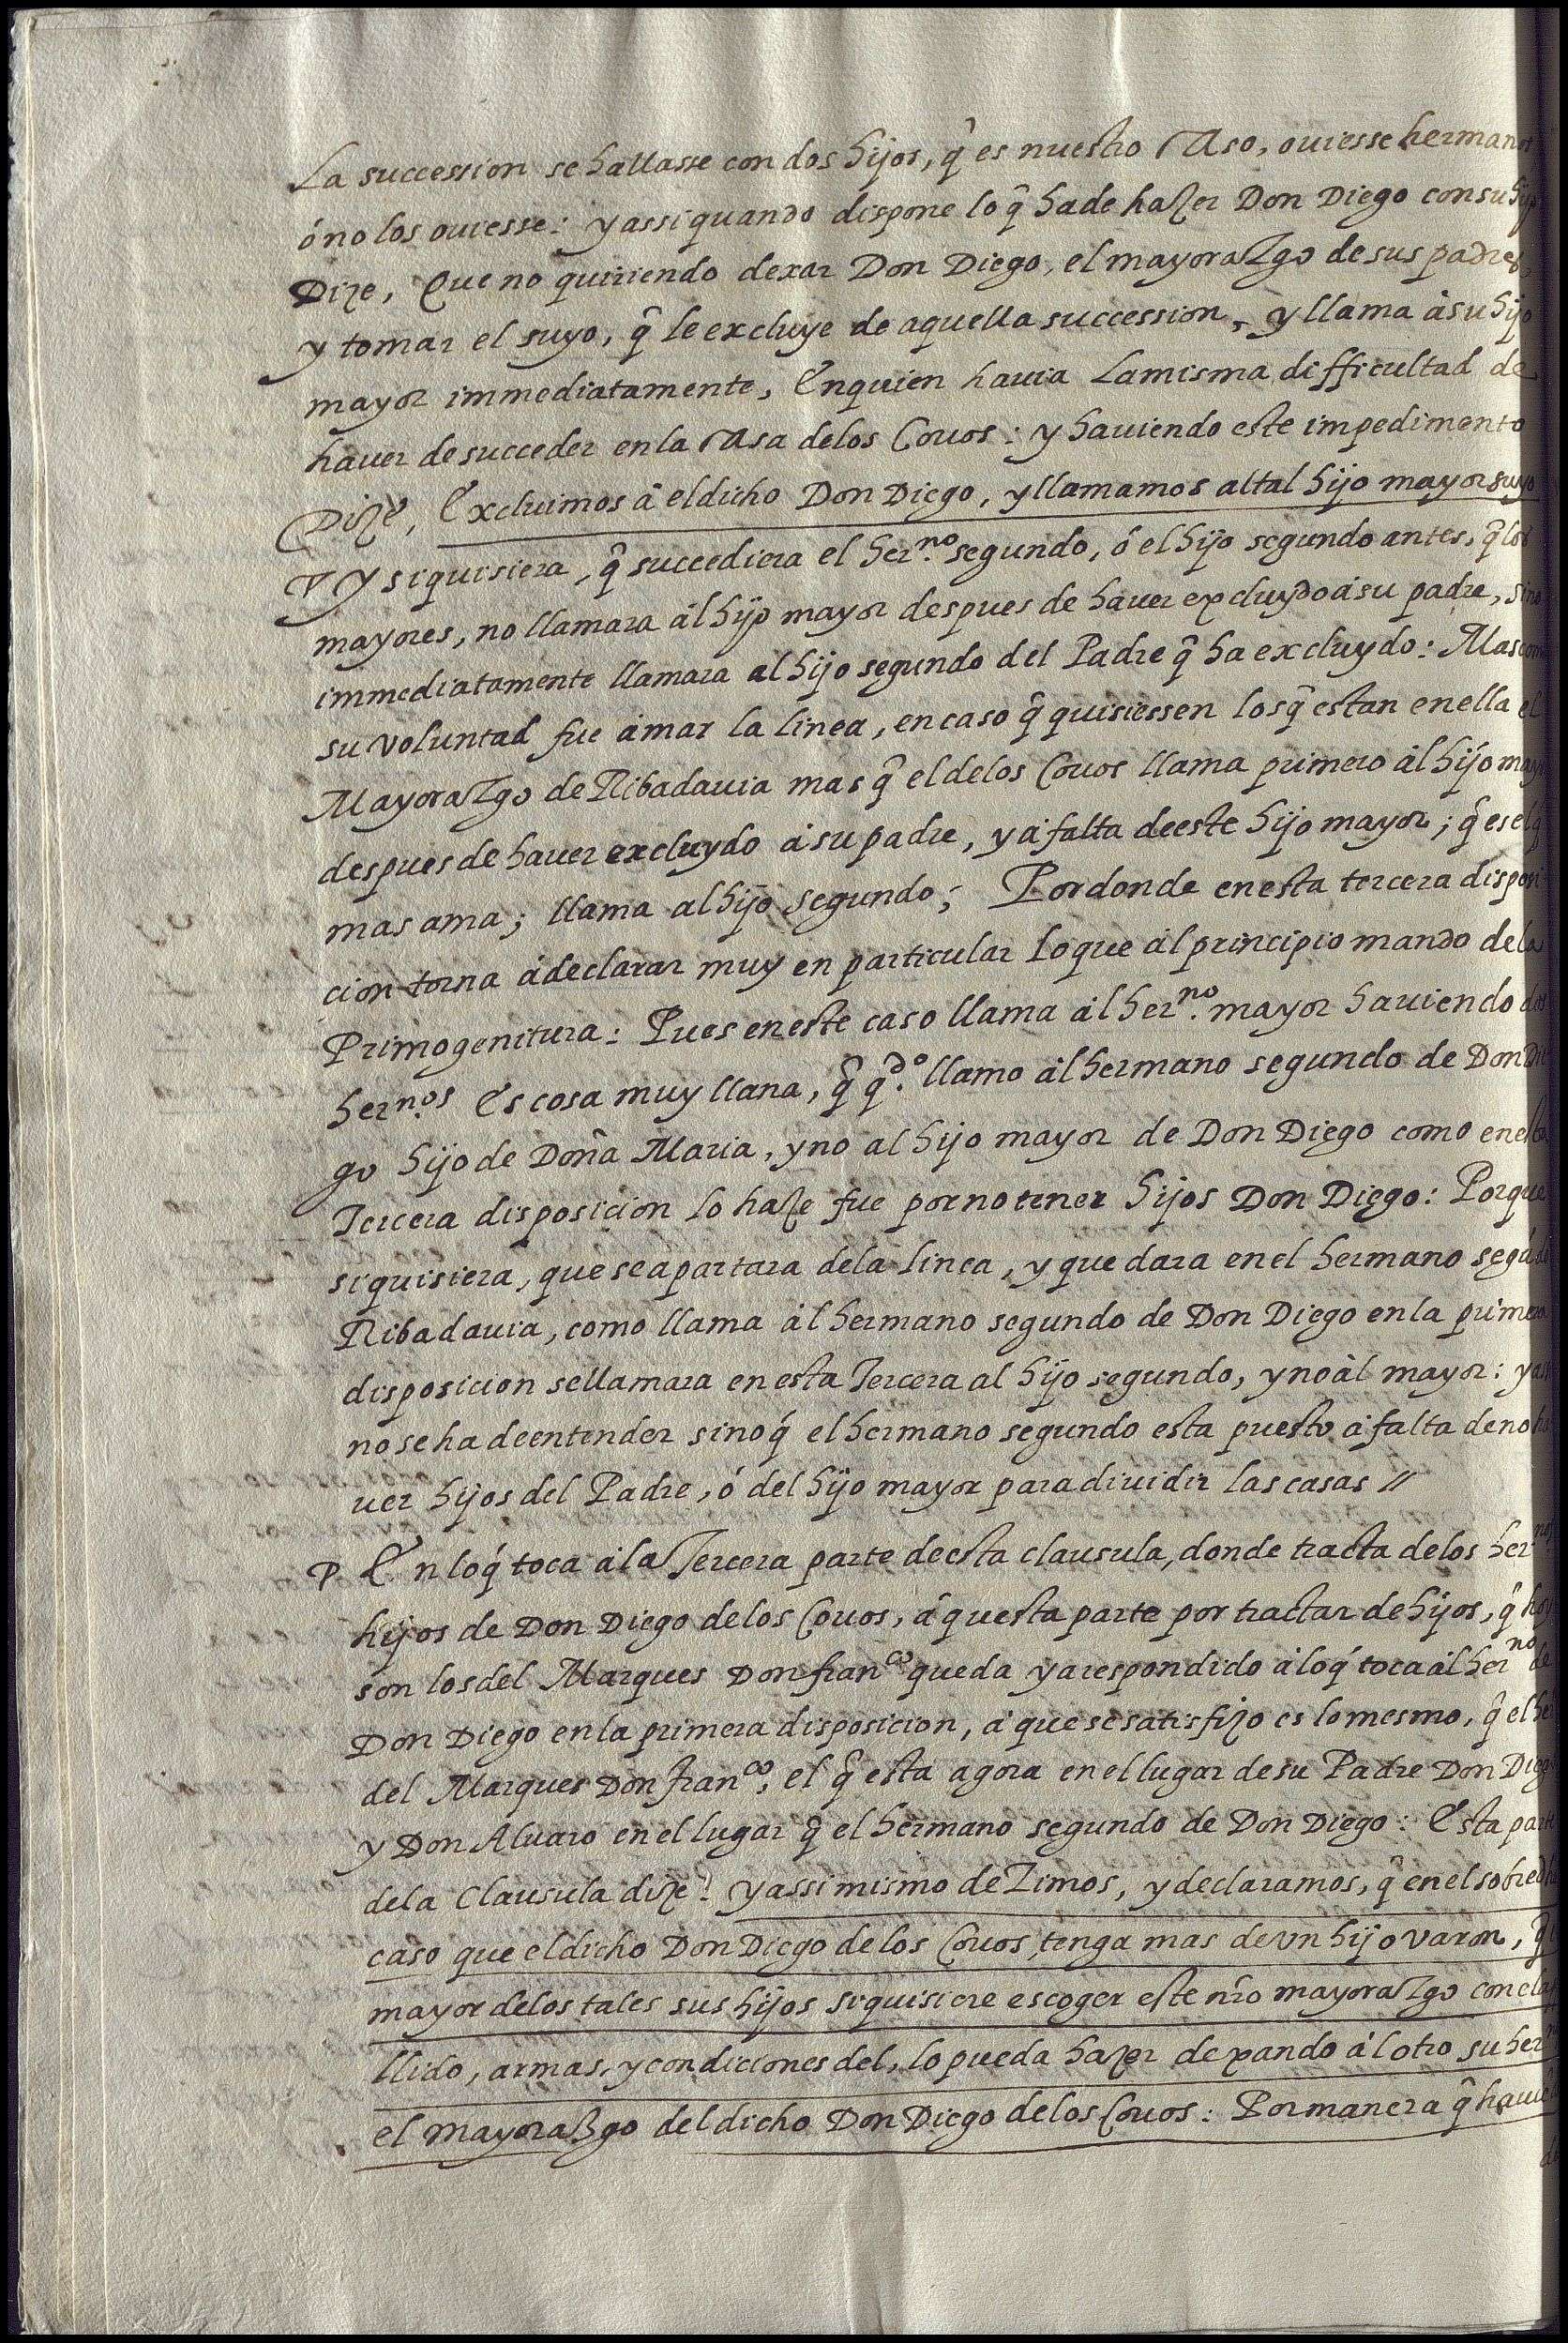 La succession se hallasse con dos hijos, q̃ es nuestro Caso, ouiesse hermanos
ó no los ouiesse: y assi quando dispone lo q̃ ha de hazer Don Diego con su hijo
Dize, Que no quiriendo dexar Don Diego, el mayorazgo de sus padres,
y tomar el suyo, q̃ le excluye de aquella succession, y llama à su hijo
mayor immediatamente, En quien hauia la misma difficultad de
hauer de succeder en la Casa de los Couos: y hauiendo este impedimento
Dize, Excluimos â el dicho Don Diego, y llamamos al tal hijo mayor suyo
Y si quisiera, q̃ succediera el her.no segundo, ó el hijo segundo antes, q̃ los
mayores, no llamara àl hijo mayor despues de hauer excluydo á su padre, sino
immediatamente llamara al hijo segundo del Padre q̃ ha excluydo: Mas como
su voluntad fue àmar la linea, en caso q̃ quisiessen los q̃ estan en ella el
Mayorazgo de Ribadauia mas q̃ el de los Couos llama primero àl hijo mayor
despues de hauer excluydo á su padre, y á falta de este hijo mayor; q̃ es el q̃
mas ama; llama al hijo segundo; Por donde en esta tercera disposi
cion torna à declarar muy en particular lo que àl principio mando de la
Primogenitura: Pues en este caso llama àl her.no mayor hauiendo dos
her.nos Es cosa muy llana, q̃ q.do llamo àl hermano segundo de Don Die
go hijo de Doña Maria, y no al hijo mayor de Don Diego como en esta
Tercera disposicion lo haze fue por no tener hijos Don Diego: Porque
si quisiera, que se apartara de la linea, y quedara en el hermano segúdo
Ribadauia, como llama àl hermano segundo de Don Diego en la primera
disposicion se llamara en esta Tercera al hijo segundo, y no àl mayor: y assi
no se ha de entender sino q̃ el hermano segundo esta puesto à falta de no ha
uer hijos del Padre, ó del hijo mayor para diuidir las casas //
P. En lo q̃ toca à la Tercera parte de esta clausula, donde tracta de los her.nos
hijos de Don Diego de los Couos, á questa parte por tractar de hijos, q̃ hoy
son los del Marques Don fran.co queda ya respondido à lo q̃ toca àl her.no de
Don Diego en la primera disposicion, á que se satisfizo es lo mesmo, q̃ el her
del Marques Don fran.co, el q̃ esta agora en el lugar de su Padre Don Diego
y Don Aluaro en el lugar q̃ el hermano segundo de Don Diego: Esta parte
de la Clausula dize: y assi mismo dezimos, y declaramos, q̃ en el sobredho
caso que el dicho Don Diego de los Couos, tenga mas de vn hijo varon, q̃ el
mayor de los tales sus hijos si quisiere escoger este nr̃o mayorazgo con el ape
llido, armas, y condiciones del, lo pueda hazer dexando àl otro su her.no
el mayorazgo del dicho Don Diego de los Couos: Por manera q̃ hauien
do